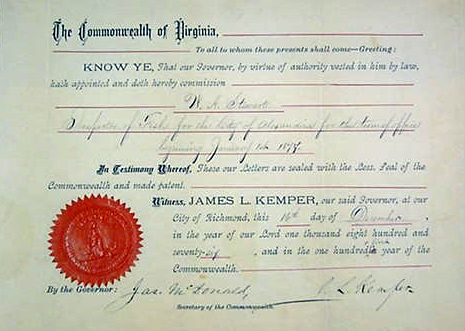 The Commonwealth of Virginia,
To all to whom these presents shall come—Greeting:
KNOW YE, That our Governor, by virtue of authority vested in him by law,
hath appointed and doth hereby commission
W. A. Stewart
Inspector of Fish for the City of Alexandria for the term of office
beginning January 1st 1877.
In Testimony Whereof, These our Letters are sealed with the Less. Seal of the
Commonwealth and made patent.
Witness, JAMES L. KEMPER, our said Governor, at our
City of Richmond, this 16th day of December,
in the year of our Lord one thousand eight hundred and
seventy-six, and in the one hundred year of the
Commonwealth.
By the Governor: Jas. McDonald, J L Kemper
Secretary of the Commonwealth.